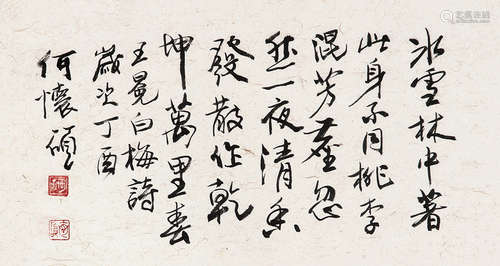 冰雪林中著
此身不同桃李
混芳塵忽
然一夜清香
發散作乾
坤萬里春
王冕白梅詩
歲次丁酉
何懷碩